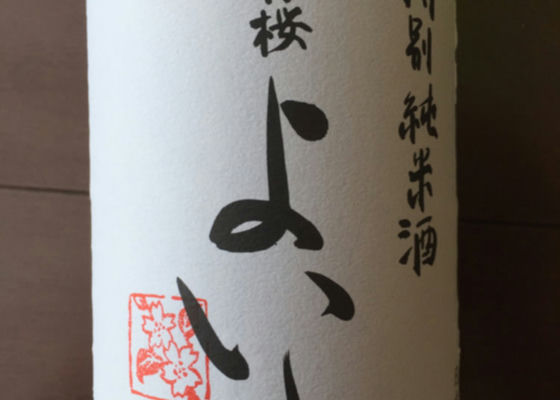 特別純米酒
桜
よい